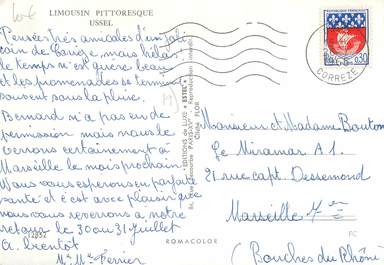 LIMOUSIN PITTORESQUE
USSEL
Pensées très amicales d'un joli
coin de Corrèze, mais hélas
le temps n'est guère beau
et les promenades se terminent
souvent sous la pluie.
Bernard n'a pas eu de
permission mais nous le
verrons certainement à
Marseille le mois prochain
Nous vous espérons en parfaite
santé et c'est avec plaisir que
nous vous reverrons à notre
retour le 30 ou 31 juillet
A bientôt
Mr Mme Ferrier
12852
EDITIONS DE LUXE "ESTEL"
PARIS-XV
Cliché FLOR
ROMACOLOR
0,30
CORREZE
Monsieur et Madame Bouton
Le Miramar A1
21 rue capt. Dessemond
Marseille 7e
(Bouches du Rhône)
FC